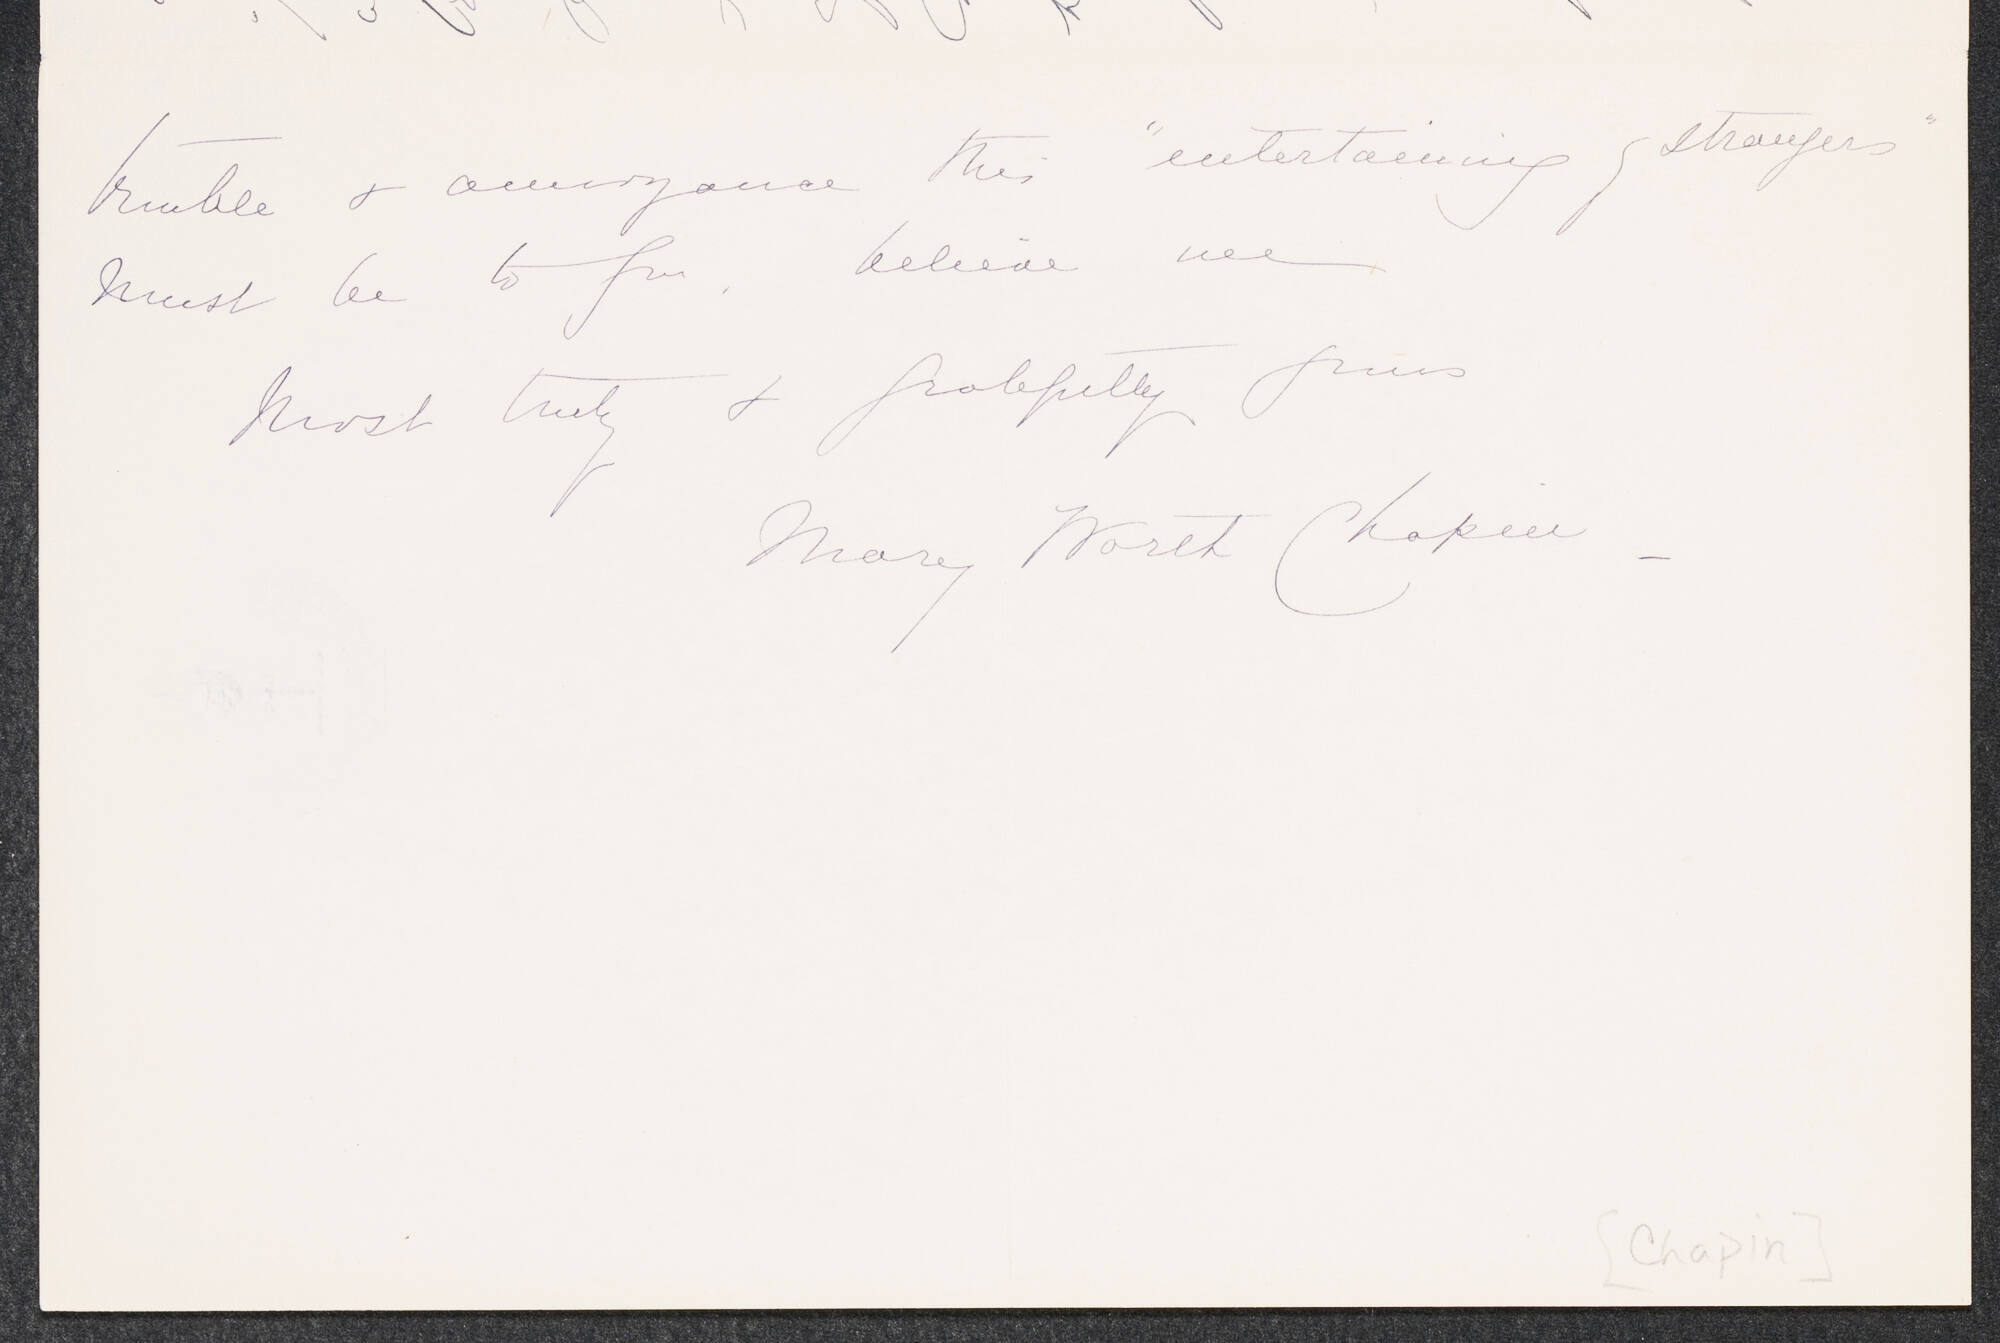 trouble & annoyance this "entertaining of strangers"
must be to you, believe me
Most truly & gratefully yours
Mary Worth Chapin –
[Chapin]